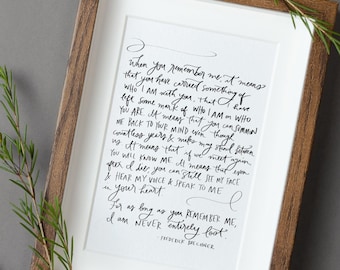 When you remember me, it means
that you have carried something of
WHO I AM with you, that I have
left some mark of WHO I am on WHO
YOU ARE. It means that you can SUMMON
ME BACK TO YOUR MIND even though
countless years & miles may stand between
us. It means that if we meet again
YOU WILL KNOW ME. It means that even
after I die, you can still SEE MY FACE
& HEAR MY VOICE & SPEAK TO ME
in your heart.
For as long as you REMEMBER ME,
I am NEVER entirely lost.
FREDERICK BUECHNER